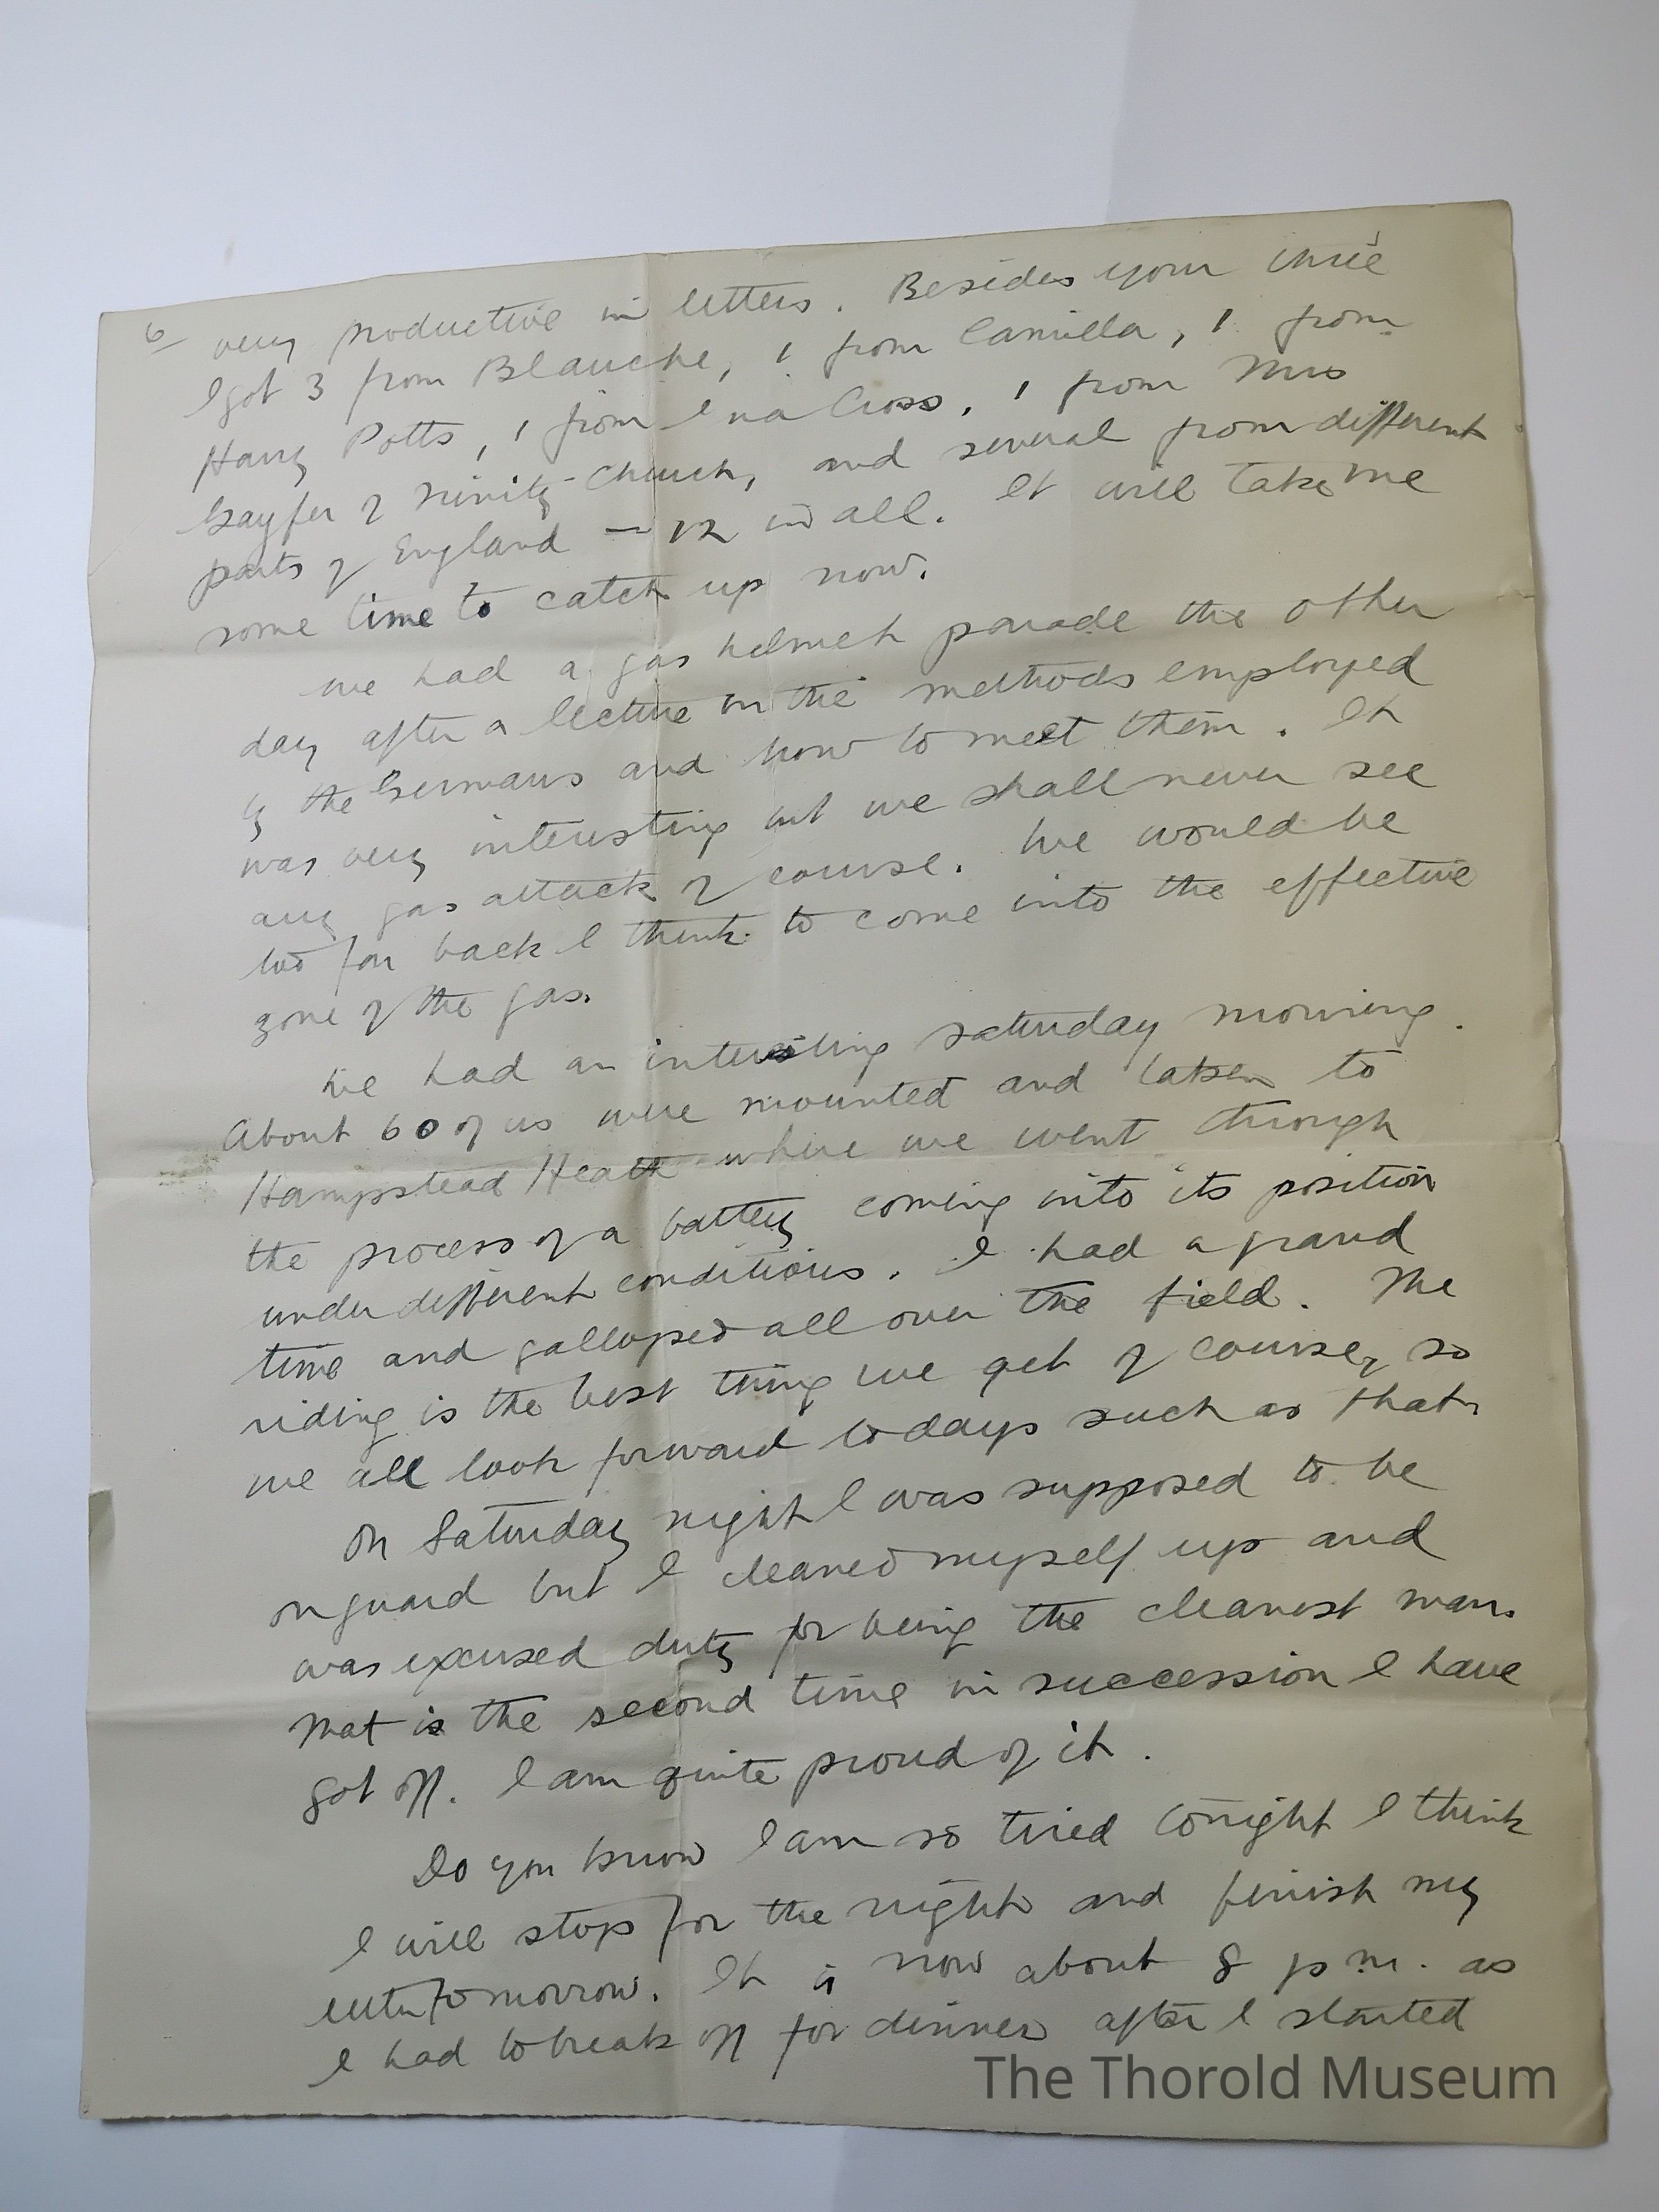 6
very productive in letters. Besides your three
I got 3 from Blanche, 1 from Camilla, 1 from
Harry Potts, 1 from Ina Cross, 1 from Mrs
Gayfer of Trinity Church, and several from different
parts of England — 12 in all. It will take me
some time to catch up now.
We had a gas helmet parade the other
day after a lecture on the methods employed
by the Germans and how to meet them. It
was very interesting but we shall never see
any gas attack of course. We would be
too far back I think to come into the effective
zone of the gas.
We had an interesting Saturday morning.
About 60 of us were mounted and taken to
Hampstead Heath where we went through
the process of a battery coming into its position
under different conditions. I had a grand
time and galloped all over the field. The
riding is the best thing we get of course, so
we all look forward to days such as that.
On Saturday night I was supposed to be
on guard but I cleaned myself up and
was excused duty for being the cleanest man.
That is the second time in succession I have
got off. I am quite proud of it.
Do you know I am so tired tonight I think
I will stop for the night and finish my
letter tomorrow. It is now about 8 p.m. as
I had to break off for dinner after I started
The Thorold Museum